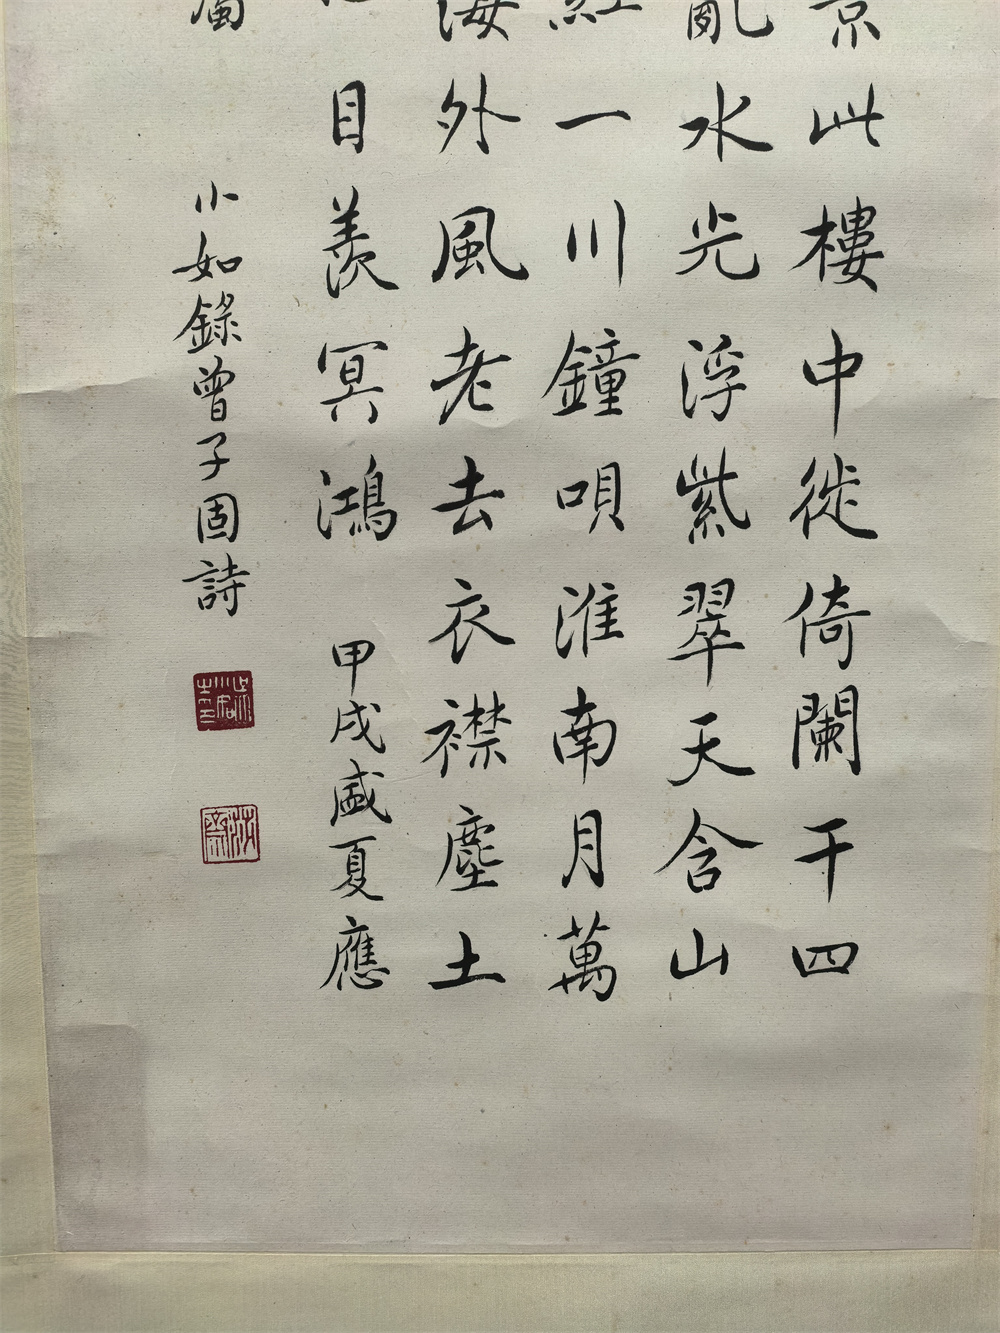 景此樓中徙倚闌干四
亂水光浮紫翠天含山
紅一川鐘唄淮南月萬
海外風老去衣襟塵土
目羨冥鴻 甲戌盛夏應
小如錄曾子固詩
莎齋